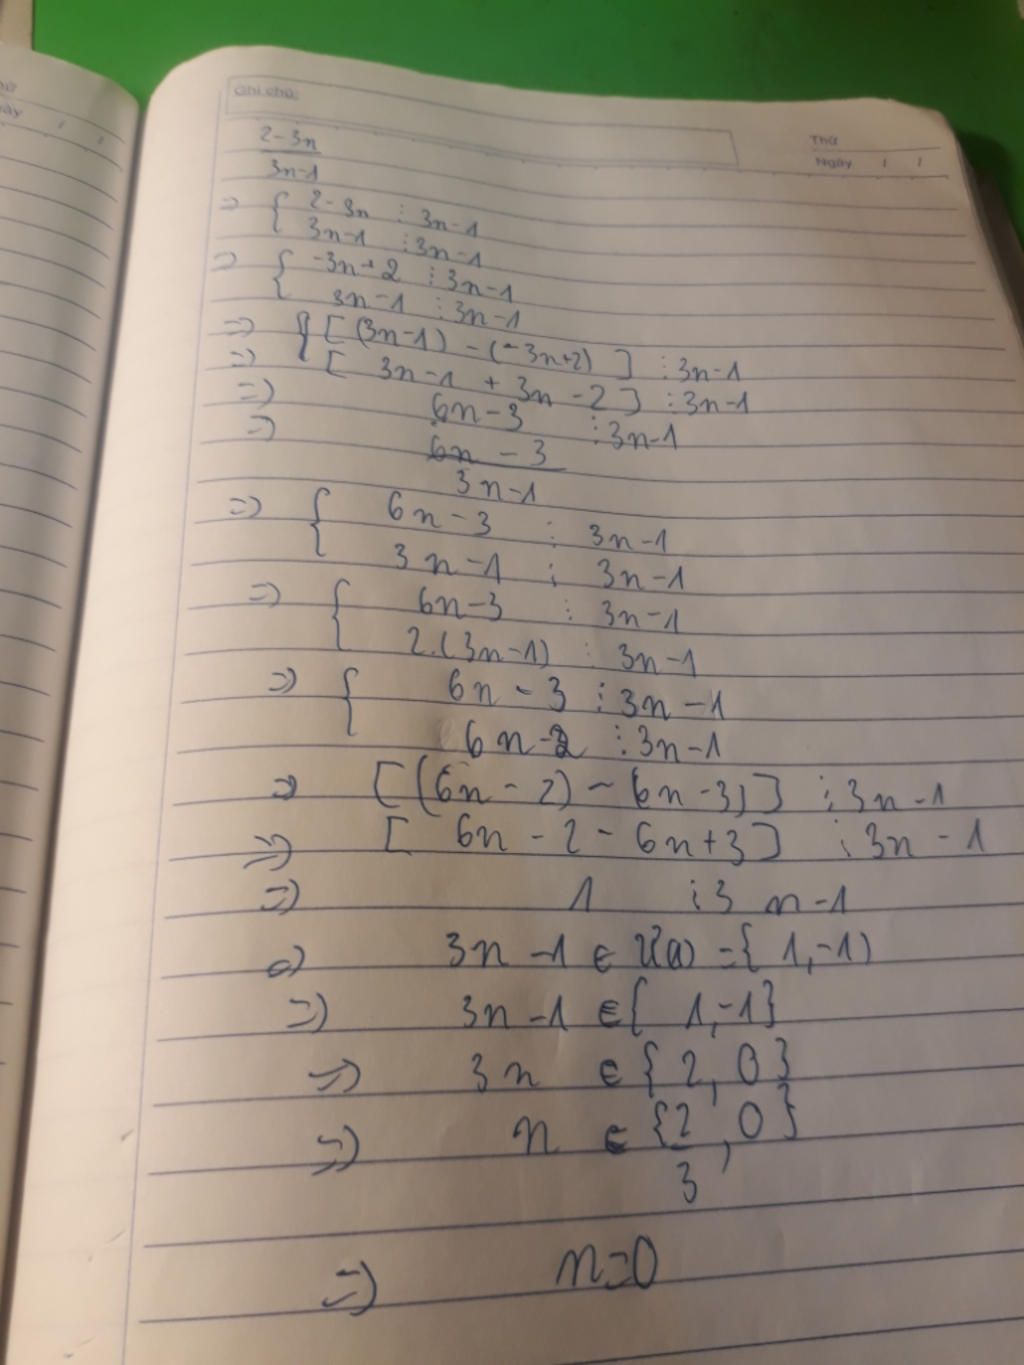 Ghi chú:
Thứ
Ngày / /
2-3n
3n-1
=> { 2-3n ⋮ 3n-1
3n-1 ⋮ 3n-1
=> { -3n+2 ⋮ 3n-1
3n-1 ⋮ 3n-1
=> { [ (3n-1) - (-3n+2) ] ⋮ 3n-1
=> [ 3n-1 + 3n-2 ] ⋮ 3n-1
=> 6n-3 ⋮ 3n-1
=> 6n-3
3n-1
=> { 6n-3 ⋮ 3n-1
3n-1 ⋮ 3n-1
=> { 6n-3 ⋮ 3n-1
2.(3n-1) ⋮ 3n-1
=> { 6n-3 ⋮ 3n-1
6n-2 ⋮ 3n-1
=> [(6n-2) - (6n-3)] ⋮ 3n-1
=> [ 6n-2-6n+3 ] ⋮ 3n-1
=> 1 ⋮ 3n-1
=> 3n-1 ∈ Ư(1) = { 1,-1)
=> 3n-1 ∈ { 1,-1}
=> 3n ∈ { 2, 0 }
=> n ∈ { 2/3, 0 }
=> n=0